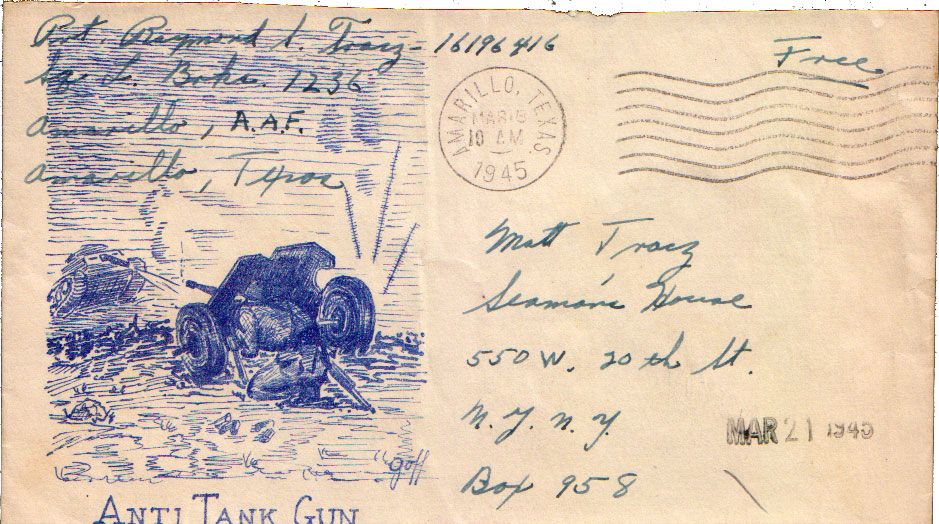 Pvt. Raymond L. Tracz - 16196416
Sq. L. Brks. 1236
Amarillo, A.A.F.
Amarillo, Texas
Free
AMARILLO, TEXAS.
MAR 
10 AM
1945
Matt Tracz
Seaman's House
550 W. 20th St.
N.Y. N.Y.
Box 958
MAR 21 1945
Goff
ANTI TANK GUN